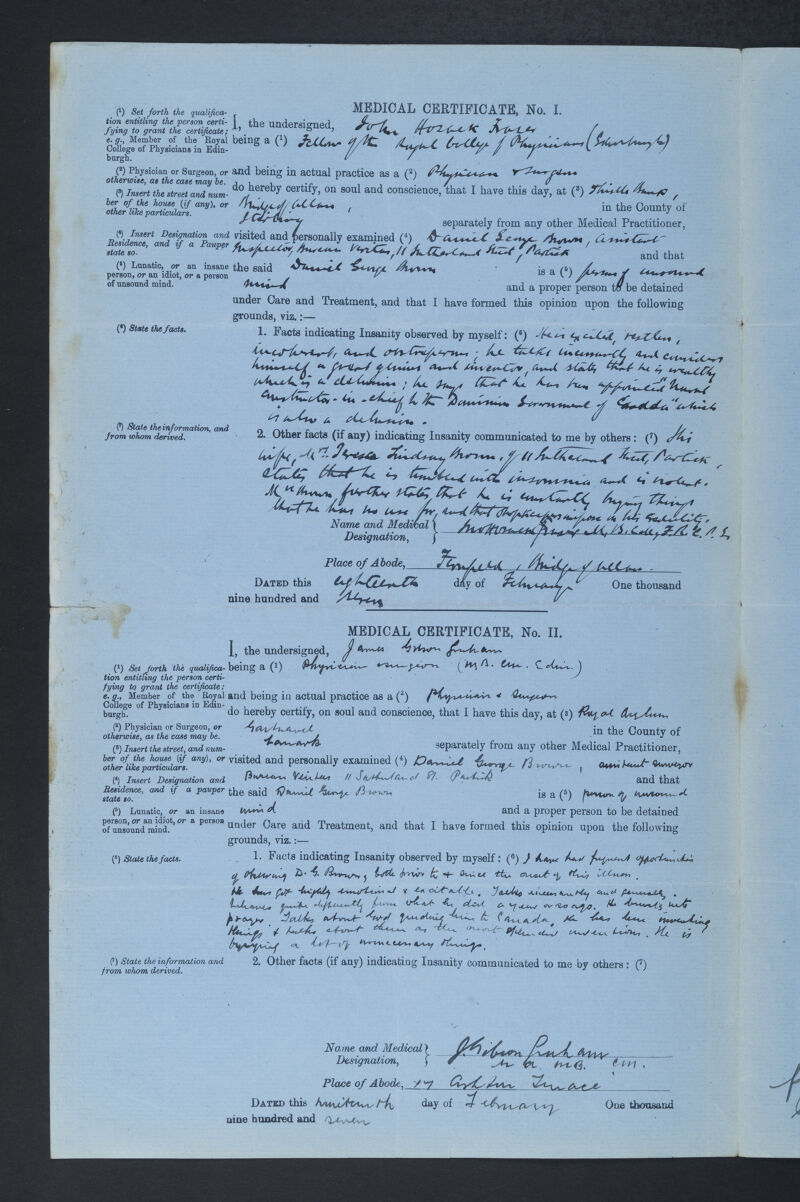 MEDICAL CERTIFICATE, No. I.
(¹) Set forth the qualifica-
tion entitling the person certi-
fying to grant the certificate;
e. g., Member of the Royal
College of Physicians in Edin-
burgh.
I, the undersigned, John Hosack Fraser
being a (¹) Fellow of the Royal College of Physicians (Edinburgh)
(²) Physician or Surgeon, or
otherwise, as the case may be.
and being in actual practice as a (²) Physician & Surgeon
(³) Insert the street and num-
ber of the house (if any), or
other like particulars.
do hereby certify, on soul and conscience, that I have this day, at (³) Thistle Bank,
Bridge of Allan, in the County of
Stirling separately from any other Medical Practitioner,
(⁴) Insert Designation and
Residence, and if a Pauper
state so.
visited and personally examined (⁴) Daniel George Brown, assistant
Inspector, Bureau Veritas, 11 Sutherland Street, Partick and that
(⁵) Lunatic, or an insane
person, or an idiot, or a person
of unsound mind.
the said Daniel George Brown is a (⁵) person of unsound
mind and a proper person to be detained
under Care and Treatment, and that I have formed this opinion upon the following
grounds, viz.:—
(⁶) State the facts.
1. Facts indicating Insanity observed by myself: (⁶) He is excited, restless,
incoherent, and obstreperous; he talks incessantly and considers
himself a great genius and inventor, and states that he is wealthy
which is a delusion; he says that he has been appointed "Naval
Constructor-in-chief to the Dominion Government of Canada" which
is also a delusion.
(⁷) State the information, and
from whom derived.
2. Other facts (if any) indicating Insanity communicated to me by others: (⁷) His
wife, Mrs. Lindsay Brown, of 11 Sutherland Street, Partick,
states that he is troubled with insomnia and is violent.
Mrs Brown further states that he is constantly buying things
that he has no use for, and that impose on his credulity.
Name and Medical
Designation,
Place of Abode, Bridge of Allan.
DATED this eighteenth day of February One thousand
nine hundred and seven
MEDICAL CERTIFICATE, No. II.
I, the undersigned, James Gibson Graham
(¹) Set forth the qualifica-
tion entitling the person certi-
fying to grant the certificate;
e. g., Member of the Royal
College of Physicians in Edin-
burgh.
being a (¹) Physician & Surgeon (M.B. Cm. Edin.)
and being in actual practice as a (²) Physician & Surgeon
(²) Physician or Surgeon, or
otherwise, as the case may be.
do hereby certify, on soul and conscience, that I have this day, at (³) Royal Asylum
Gartnavel in the County of
(³) Insert the street, and num-
ber of the house (if any), or
other like particulars.
Lanark separately from any other Medical Practitioner,
visited and personally examined (⁴) Daniel George Brown, assistant surveyor
(⁴) Insert Designation and
Residence, and if a pauper
state so.
Bureau Veritas 11 Sutherland St. Partick and that
the said Daniel George Brown is a (⁵) person of unsound
(⁵) Lunatic, or an insane
person, or an idiot, or a person
of unsound mind.
mind and a proper person to be detained
under Care and Treatment, and that I have formed this opinion upon the following
grounds, viz.:—
(⁶) State the facts.
1. Facts indicating Insanity observed by myself: (⁶) I have had frequent opportunities
of observing D. G. Brown, both prior to & since the onset of this illness.
He has got highly emotional & excitable. Talks incessantly and generally
behaves quite differently from what he did a year or so ago. He
prayer Talks about God guiding him to Canada. He has been inventing
things & talks about them as the most splendid inventions. He is
buying a lot of unnecessary things.
(⁷) State the information and
from whom derived.
2. Other facts (if any) indicating Insanity communicated to me by others: (⁷)
Name and Medical
Designation,
J. Gibson Graham
M.A. M.B. C.M.
Place of Abode, 17 Ashton Terrace
DATED this nineteenth day of February One thousand
nine hundred and seven